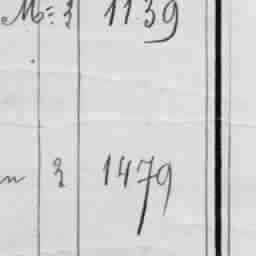 M= 3 1139
n 3 1479